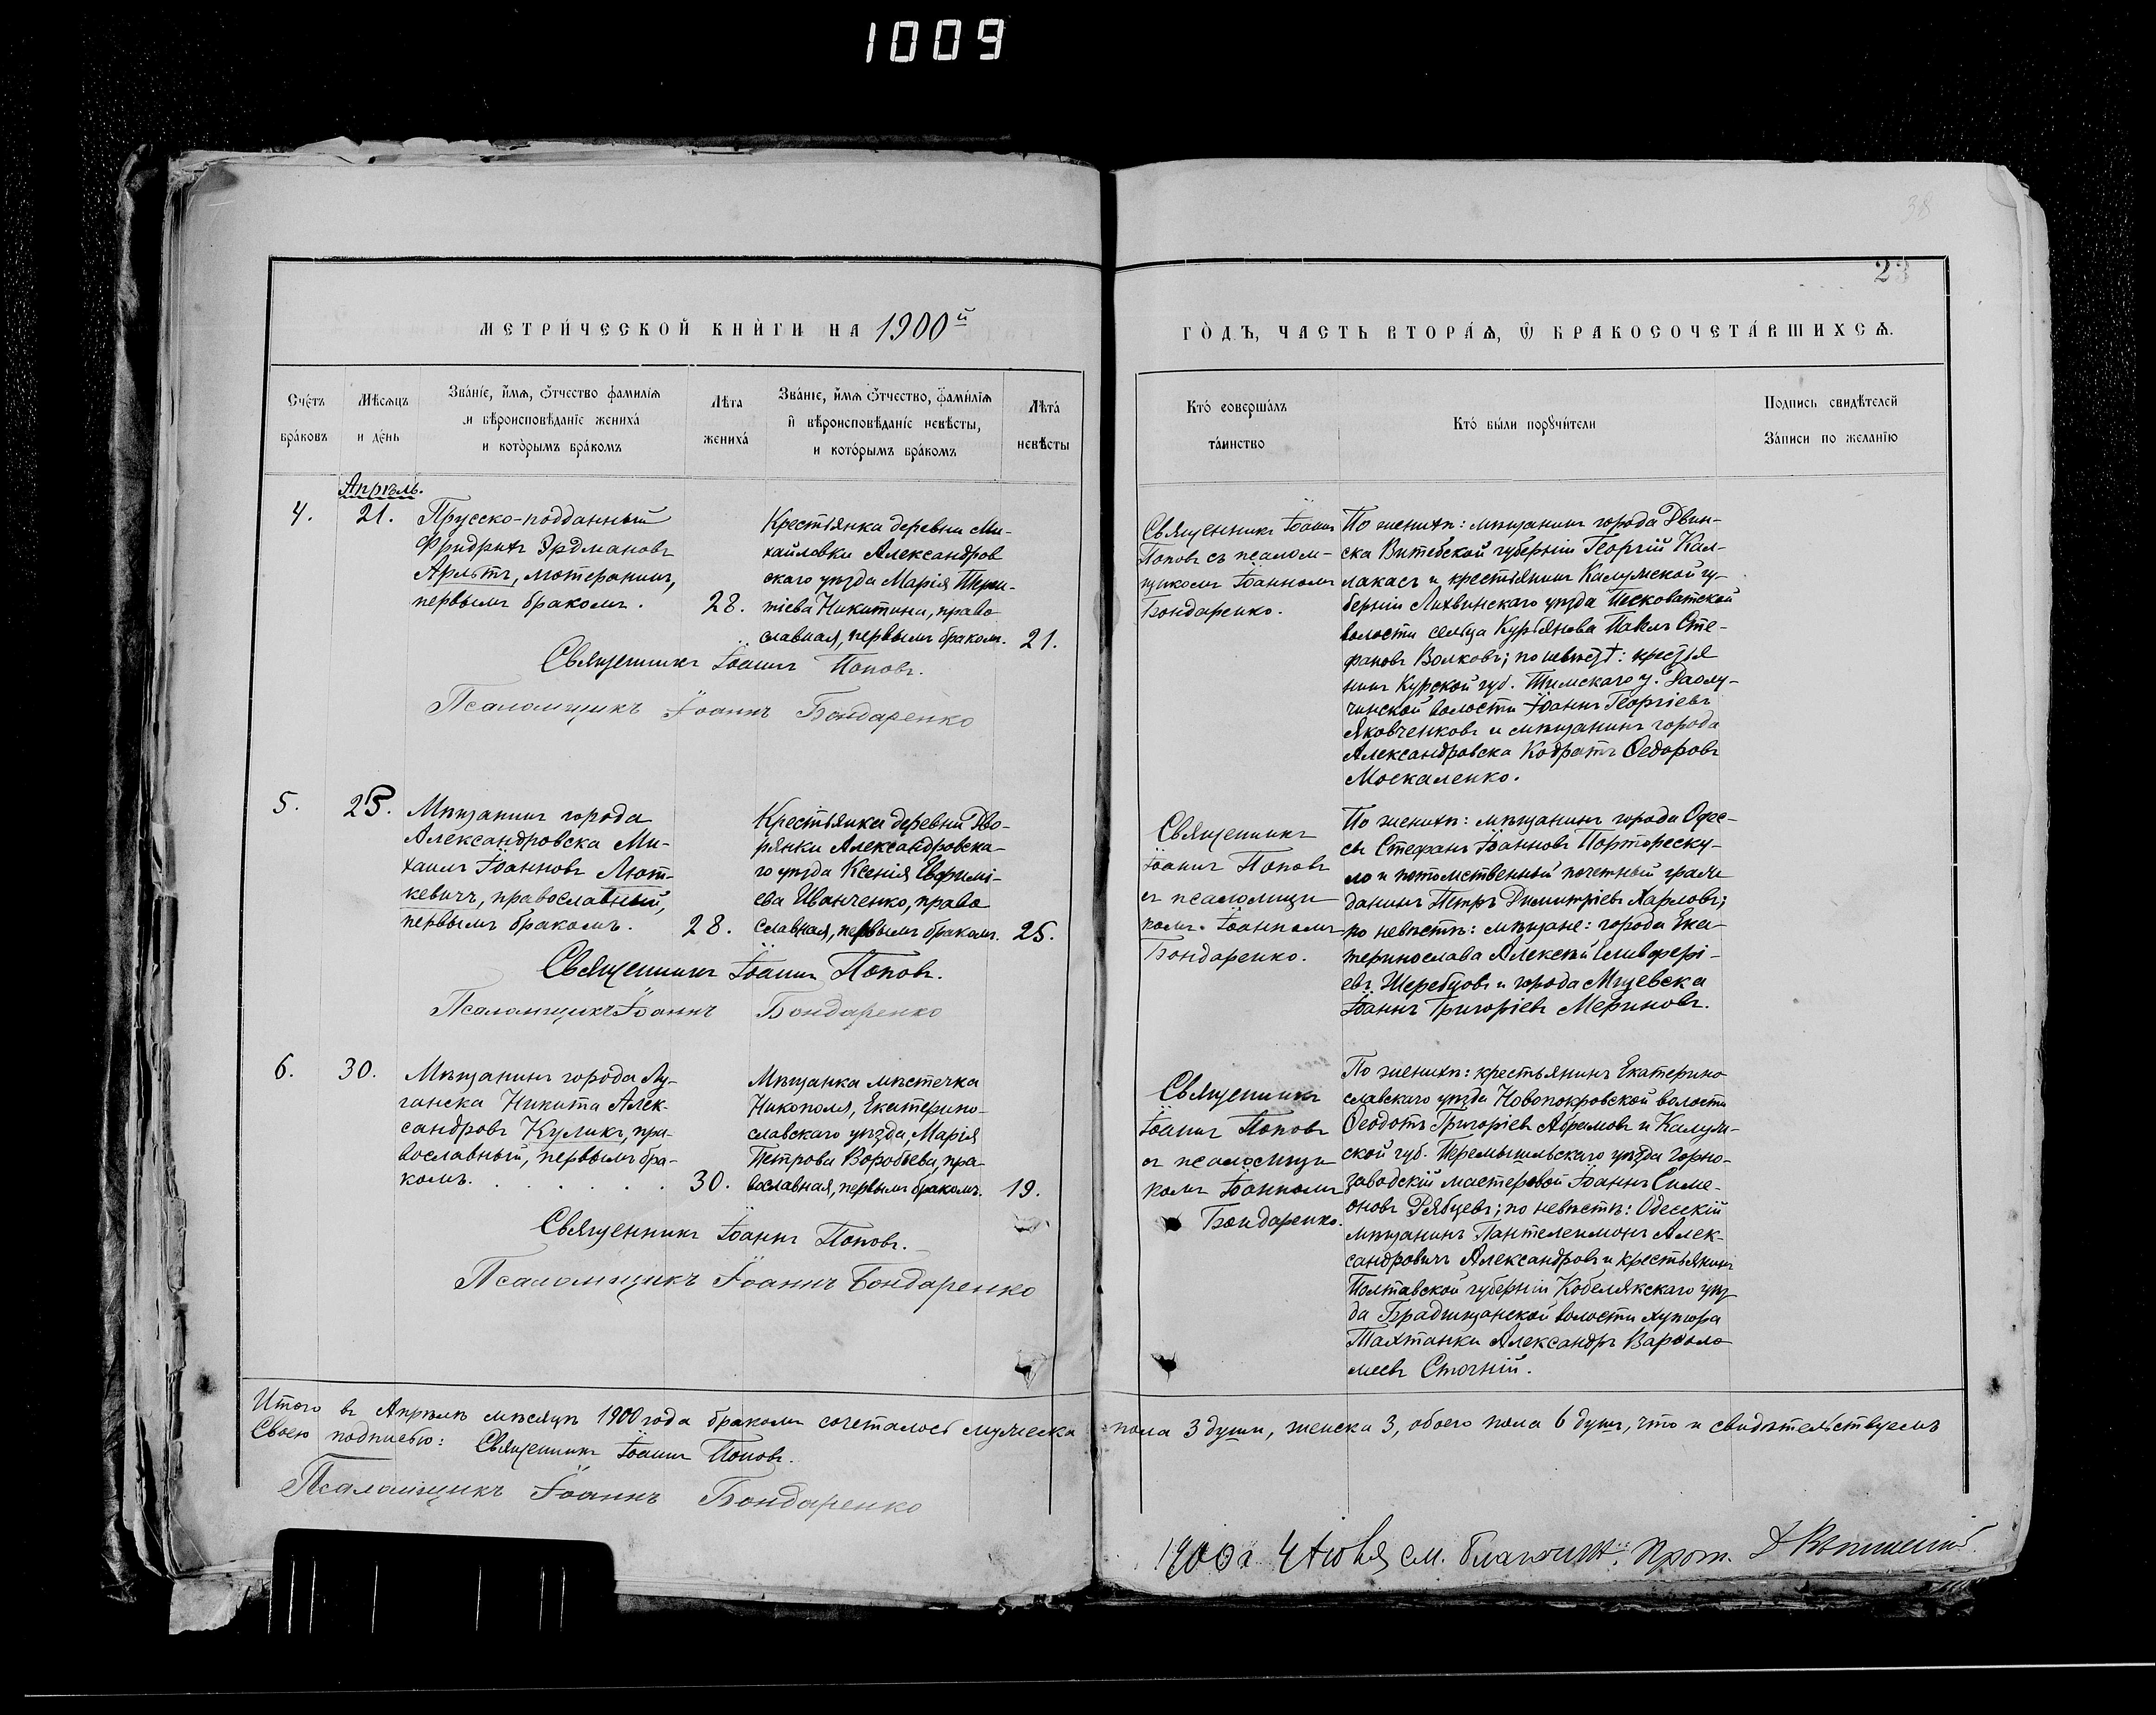 1009
38
23
МЕТРИ́ЧЕСКОЙ КНИ́ГИ НА 1900й
ГО́ДЪ, ЧАСТЬ ВТОРА́Ѧ, Ѽ БРАКОСОЧЕТА́ВШИХСѦ.
Сче́тъ бра́ковъ
Мѣ́сѧцъ и де́нь
Зва́нїе, и́мѧ, ѻ́тчество фами́лїѧ
и вѣроисповѣ́данїе жениха́
и кото́рымъ бра́комъ
Лѣ́та жениха́
Зва́нїе, и́мѧ ѻ́тчество, фами́лїѧ
и҆ вѣроисповѣ́данїе невѣ́сты,
и кото́рымъ бра́комъ
Лѣ́та невѣ́сты
Кто́ соверша́лъ
та́инство
Кто́ бы́ли порꙋчи́тели
Подпись свидѣ́телей
За́писи по жела́нїю
Апрѣль.
4.
21.
Прусско-подданный
Фридрихъ Эрдмановъ
Арльтъ, лютеранинъ,
первымъ бракомъ.
28.
Крестьянка деревни Ми-
хайловки Александров
скаго уѣзда Марія
тіева Никитина, право
славная, первымъ бракомъ.
21.
Священникъ Іоаннъ Поповъ.
Псаломщикъ Іоаннъ Бондаренко
Священникъ Іоаннъ
Поповъ съ псалом-
щикомъ Іоанномъ
Бондаренко.
По женихѣ: мѣщанинъ города Двин-
ска Витебской губерніи Георгій Кал-
лакасъ и крестьянинъ Калужской гу-
берніи Лихвинскаго уѣзда Песковатской
волости сельца Курьянова Павелъ Сте-
фановъ Волковъ; по невѣстѣ: крестья
нинъ Курской губ. Тимскаго у.
чинской волости Іоаннъ Георгіевъ
Яковченковъ и мѣщанинъ города
Александровска Кодратъ Ѳедоровъ
Москаленко.
5.
25.
Мѣщанинъ города
Александровска Ми-
хаилъ Іоанновъ Лют-
кевичъ, православный,
первымъ бракомъ.
28.
Крестьянка деревни Дво-
рянки Александровска-
го уѣзда Ксенія Евфимі-
ева Иванченко, право
славная, первымъ бракомъ.
25.
Священникъ Іоаннъ Поповъ.
Псаломщикъ Іоаннъ Бондаренко
Священникъ
Іоаннъ Поповъ
съ псаломщи
комъ Іоанномъ
Бондаренко.
По женихѣ: мѣщанинъ города Одес-
сы Стефанъ Іоанновъ Портореску-
ло и потомственный почетный граж
данинъ Петръ Димитріевъ Харловъ;
по невѣстѣ: мѣщане: города Ека-
теринослава Алексѣй Елевфері-
евъ Шеребцовъ и города Мценска
Іоаннъ Григоріевъ Мериновъ.
6.
30.
Мѣщанинъ города Лу-
ганска Никита Алек-
сандровъ Куликъ, пра-
вославный, первымъ бра-
комъ.
30.
Мѣщанка мѣстечка
Никополя, Екатерино-
славскаго уѣзда, Марія
Петрова Воробьева, пра-
вославная, первымъ бракомъ.
19.
Священникъ Іоаннъ Поповъ.
Псаломщикъ Іоаннъ Бондаренко
Священникъ
Іоаннъ Поповъ
съ псаломщи
комъ Іоанномъ
Бондаренко.
По женихѣ: крестьянинъ Екатерино
славскаго уѣзда Новопокровской волости
Ѳеодотъ Григоріевъ Абрамовъ и Калуж-
ской губ. Перемышльскаго уѣзда Горно-
заводскій мастеровой Іоаннъ Симе-
оновъ Рябцевъ; по невѣстѣ: Одесскій
мѣщанинъ Пантелеимонъ Алек-
сандровичъ Александровъ и крестьянинъ
Полтавской губерніи Кобелякскаго уѣз
да волости хутора
Тахтанки Александръ Варѳоло
меевъ Стогній.
Итого въ Апрѣлѣ мѣсяцѣ 1900 года бракомъ сочеталось мужеска пола 3 души, женска 3, обоего пола 6 душъ, что и свидѣтельствуемъ
Своею подписью: Священникъ Іоаннъ Поповъ.
Псаломщикъ Іоаннъ Бондаренко
1900 г. 4 Іюня см. благочин: Прот.